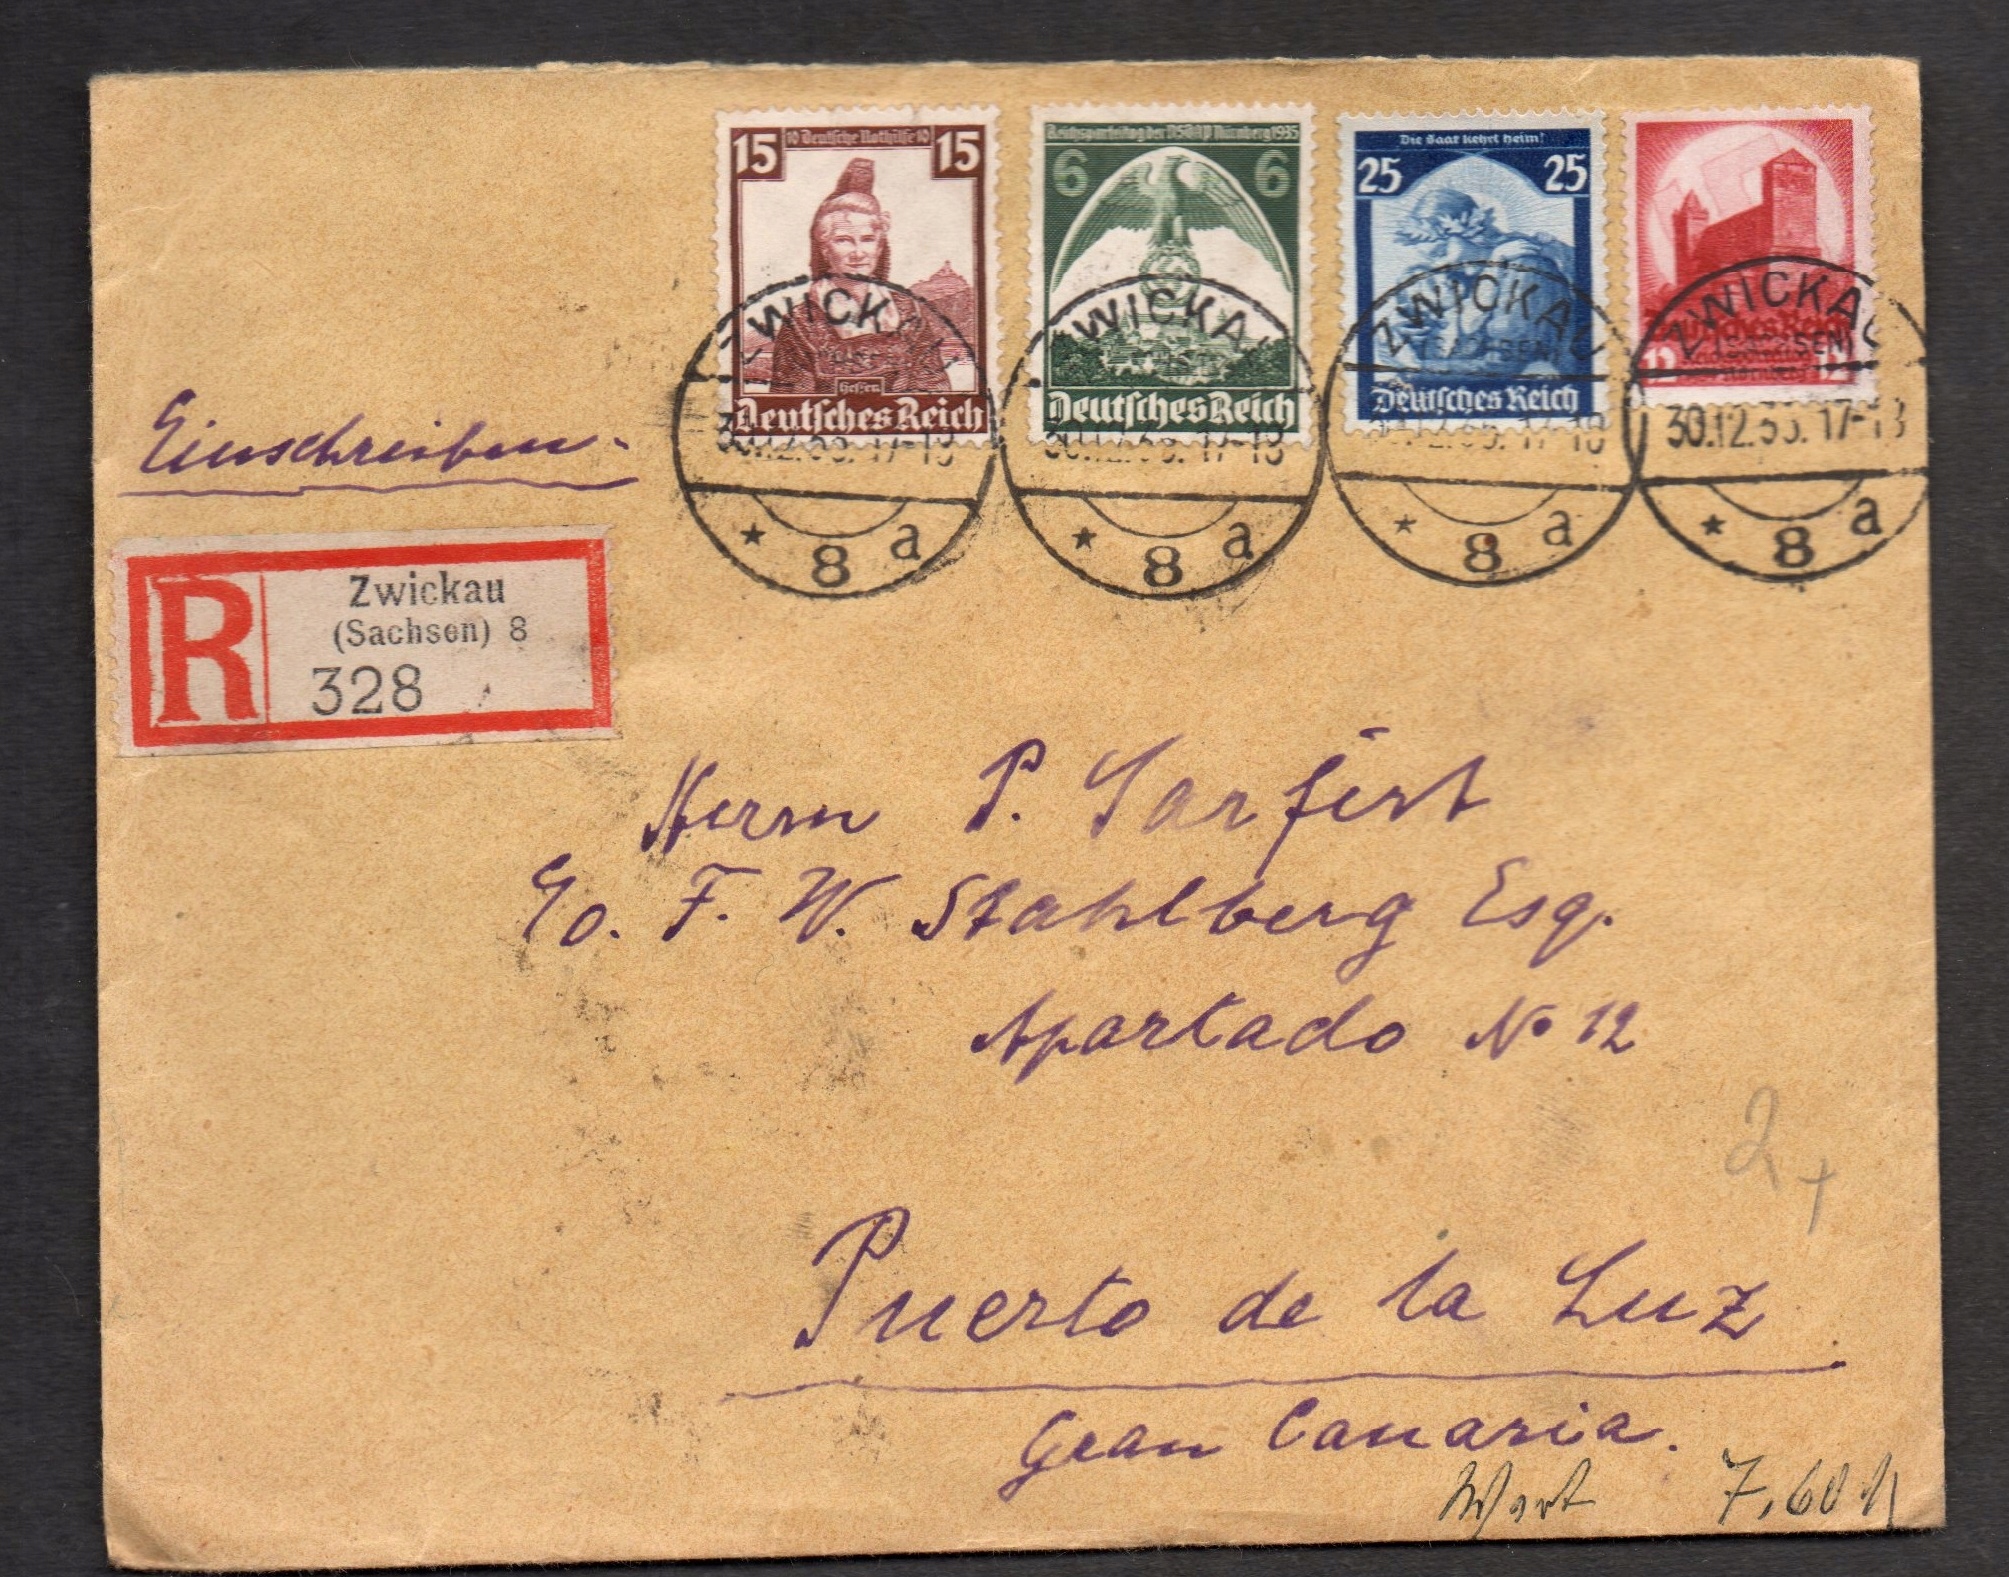 15 10 Deutsche Nothilfe 10 15
Hessen
Deutsches Reich
Reichsparteitag der NSDAP Nürnberg 1935
6 6
Deutsches Reich
Die Saar kehrt heim!
25 25
Deutsches Reich
Deutsches Reich
12 Nürnberg 12
ZWICKAU
30.12.35. 17-18
* 8 a
ZWICKAU
30.12.35. 17-18
* 8 a
ZWICKAU
(SACHSEN)
30.12.35. 17-18
* 8 a
ZWICKAU
(SACHSEN)
30.12.35. 17-18
* 8 a
Einschreiben.
R Zwickau
(Sachsen) 8
328
Herrn P. Sarfert
Co. F. W. Stahlberg Esq.
Apartado No 12
2+
Puerto de la Luz
Gran Canaria.
Wert 7,60